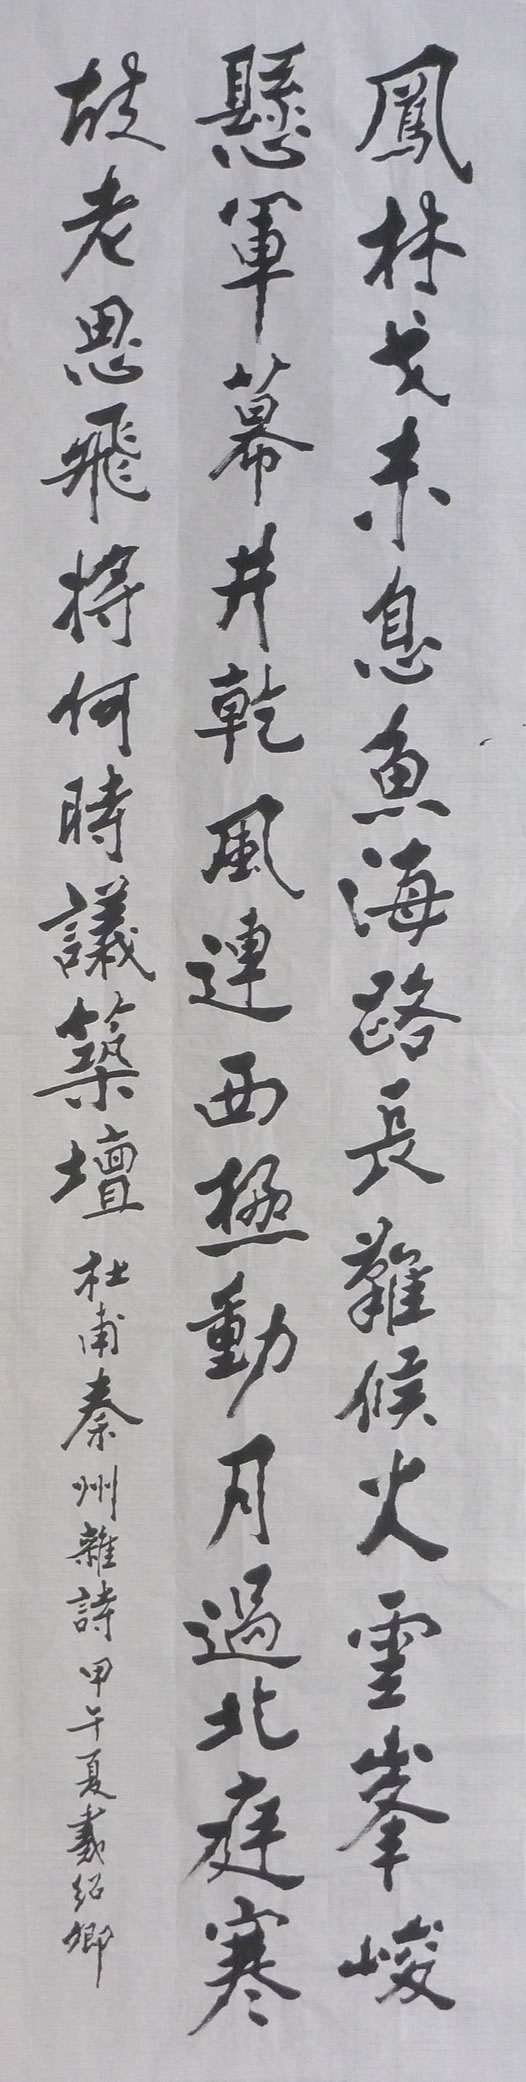 鳳林戈未息魚海路長難候火雲峯峻
懸軍幕井乾風連西極動月過北庭寒
故老思飛將何時議築壇 杜甫秦州雜詩 甲午夏 紹卿